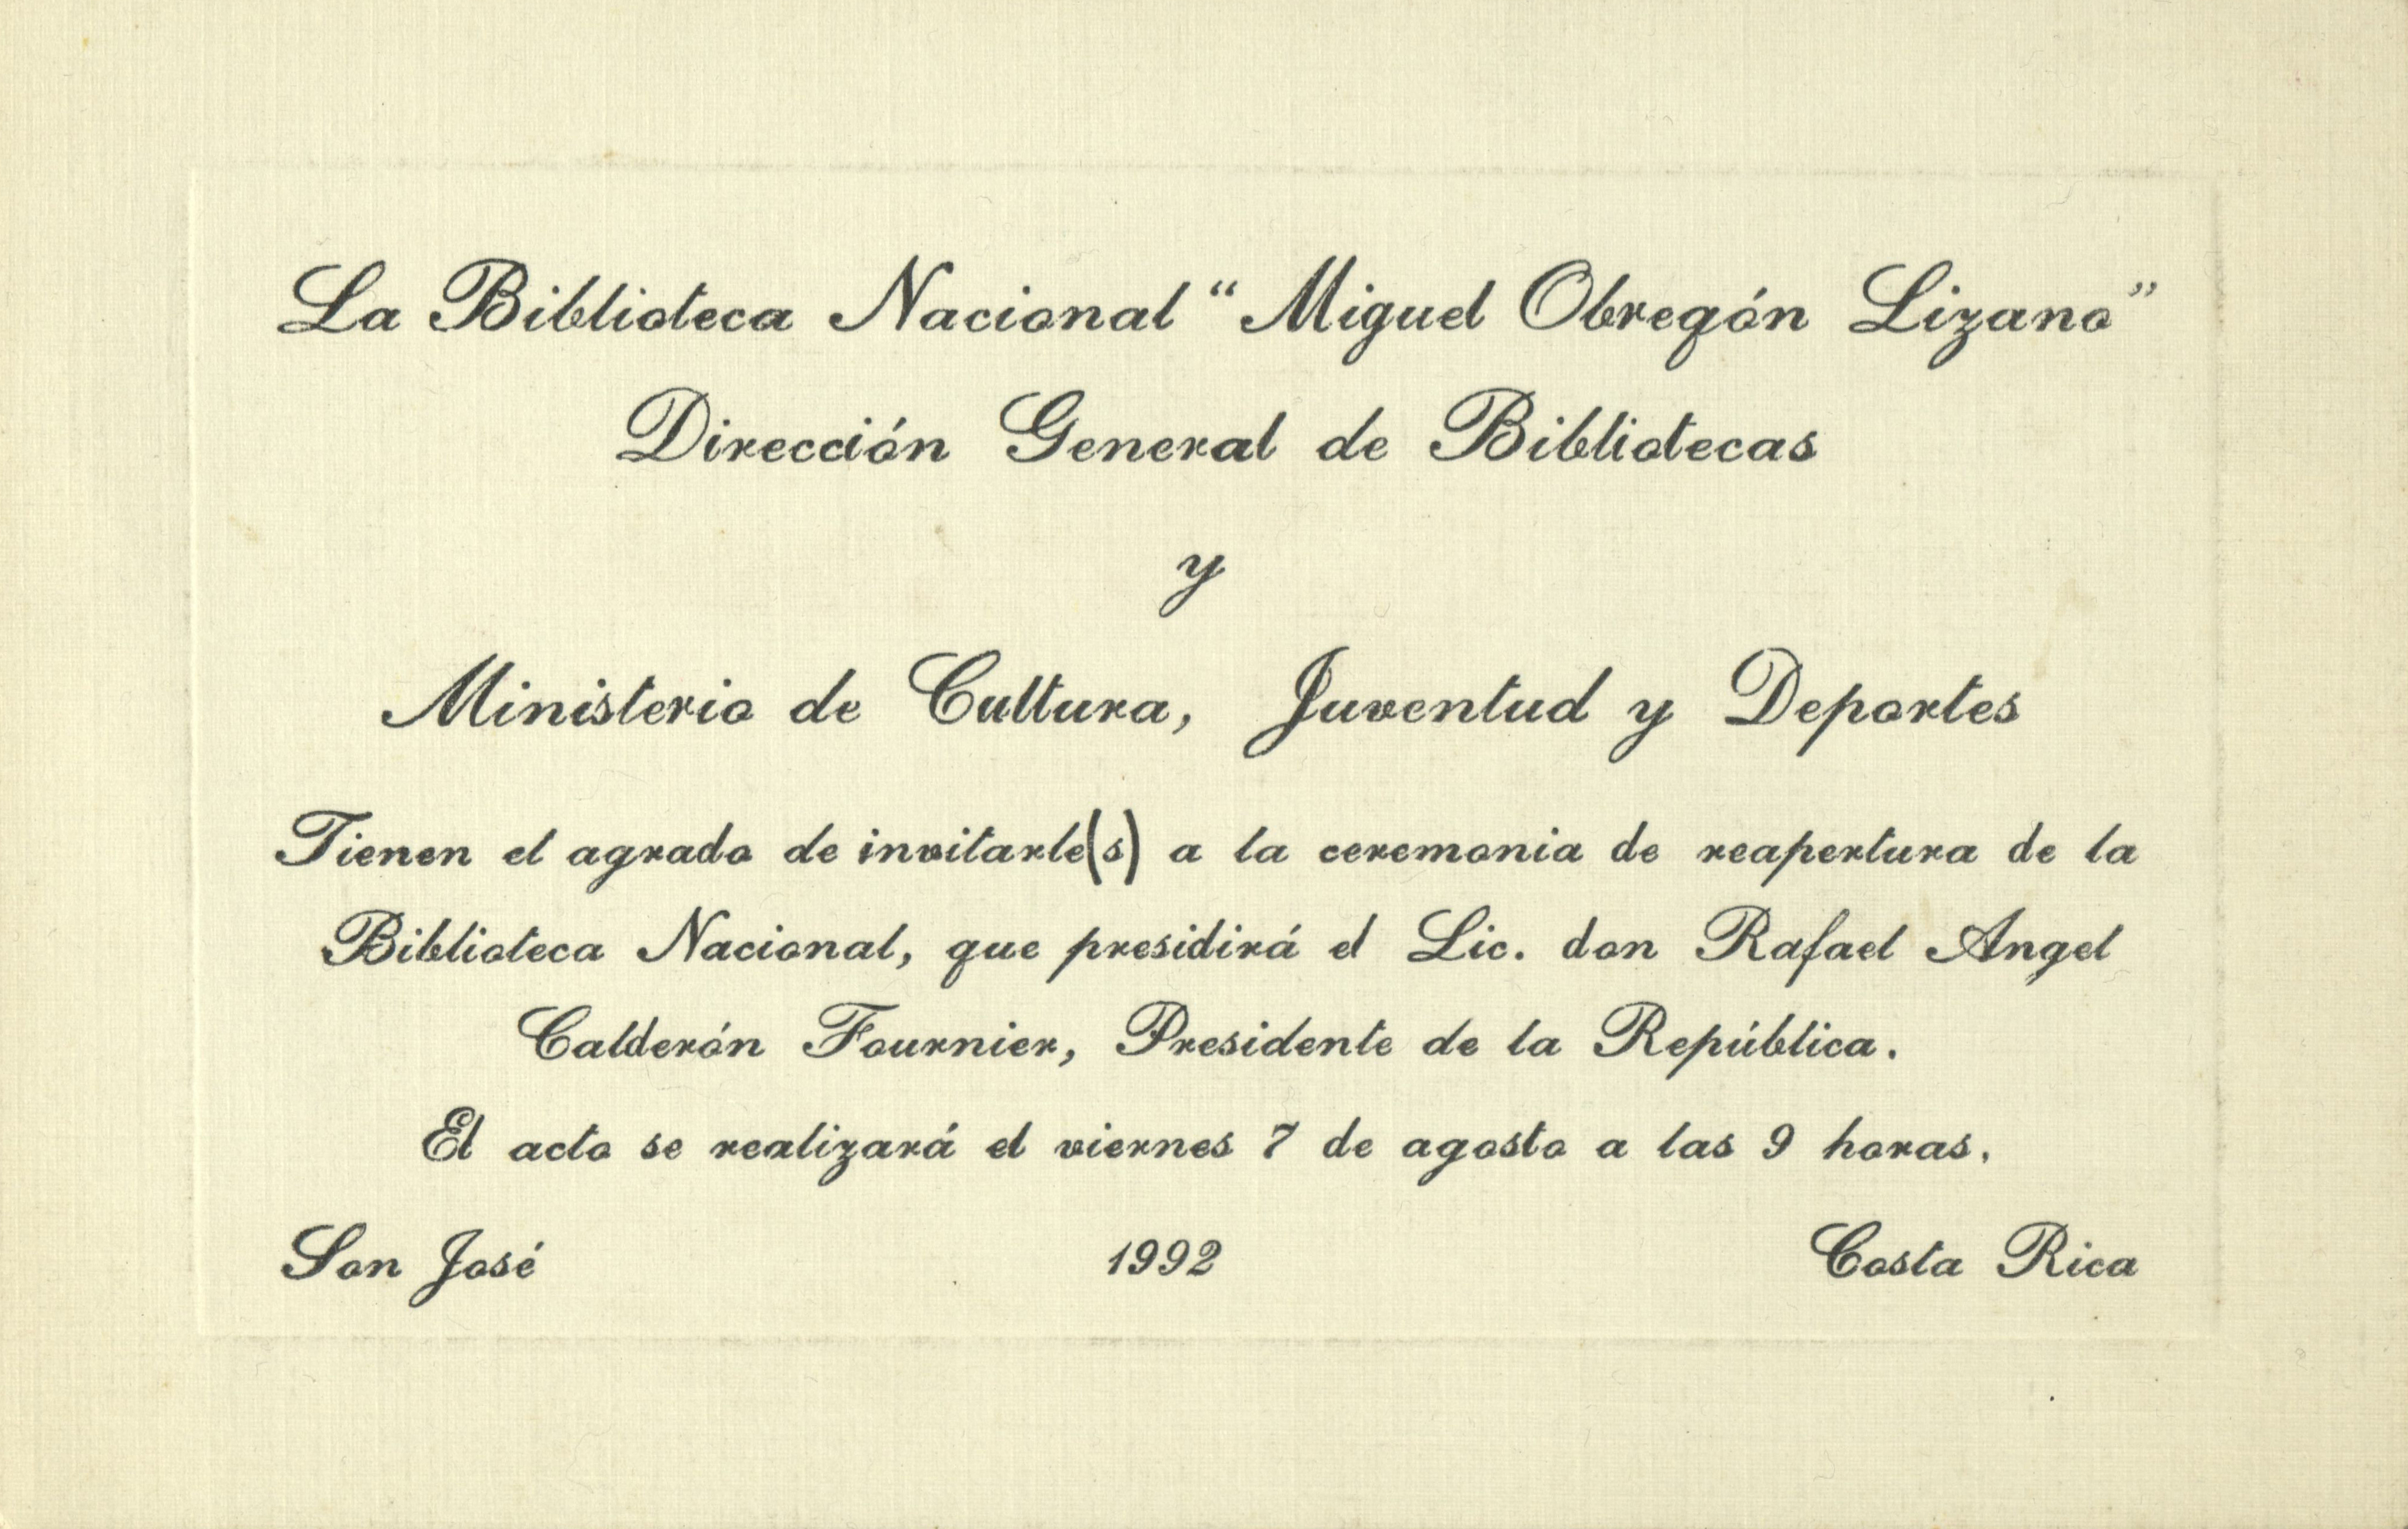 La Biblioteca Nacional “Miguel Obregón Lizano”
Dirección General de Bibliotecas
y
Ministerio de Cultura, Juventud y Deportes
Tienen el agrado de invitarle(s) a la ceremonia de reapertura de la
Biblioteca Nacional, que presidirá el Lic. don Rafael Angel
Calderón Fournier, Presidente de la República.
El acto se realizará el viernes 7 de agosto a las 9 horas.
San José 1992 Costa Rica